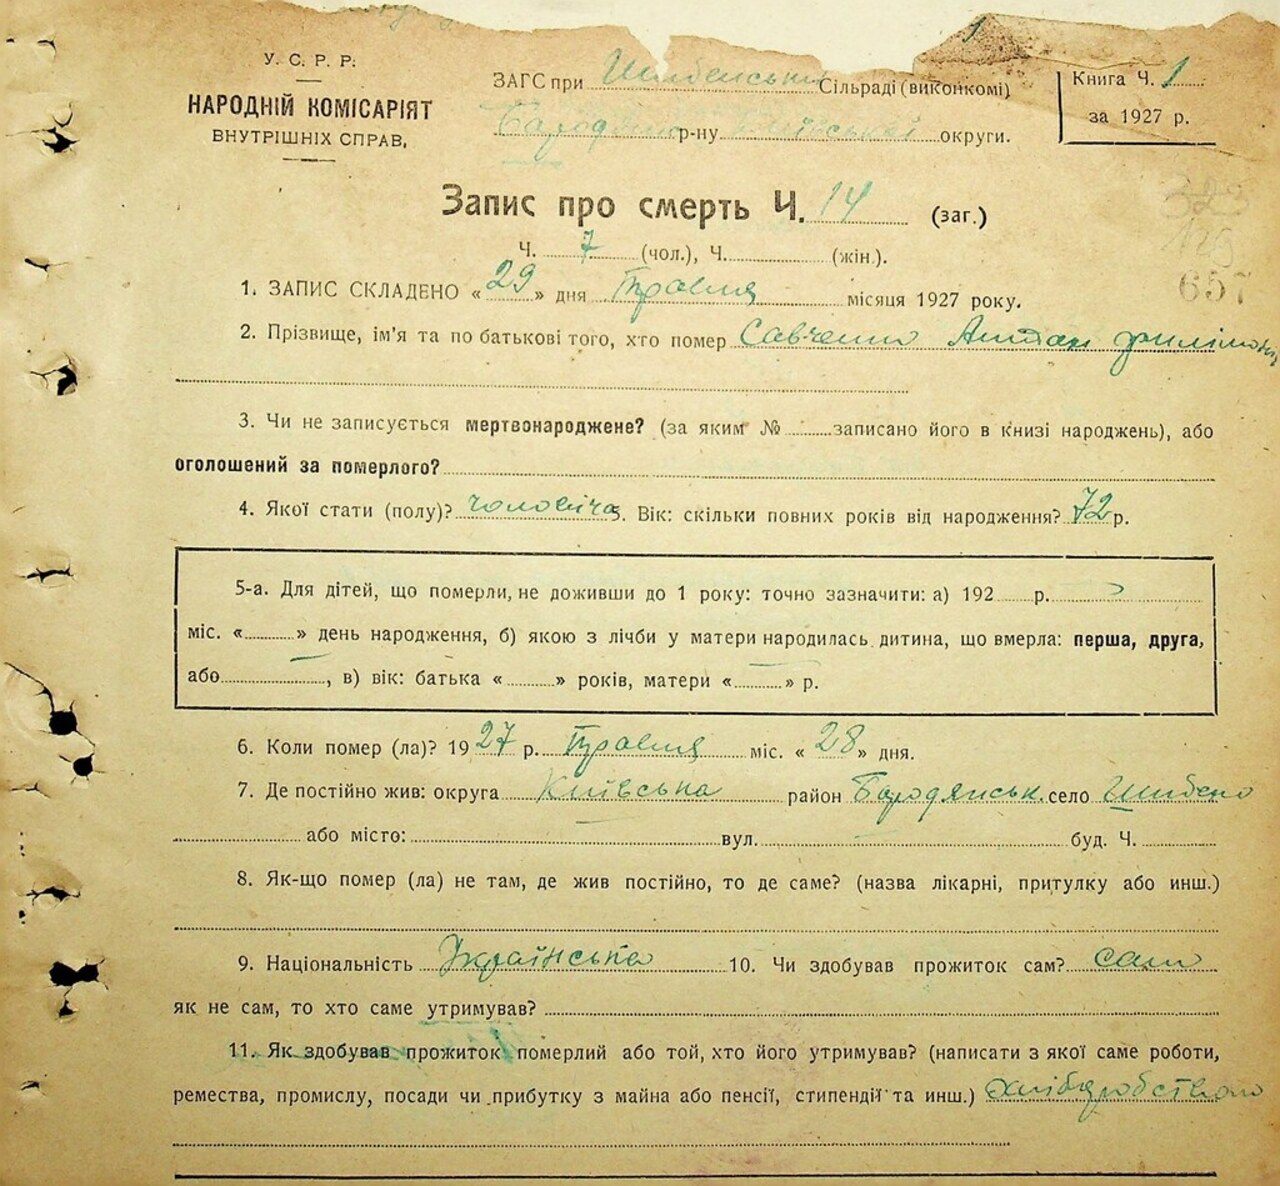 У. С. Р. Р.
НАРОДНІЙ КОМІСАРІЯТ
ВНУТРІШНІХ СПРАВ,
ЗАГС при Шибенській Сільраді (виконкомі)
Бородянс р-ну Київської округи.
Книга Ч. 1
за 1927 р.
Запис про смерть Ч. 14 (заг.)
Ч. 7 (чол.), Ч. (жін.).
323
125
657
1. ЗАПИС СКЛАДЕНО « 29 » дня Травня місяця 1927 року.
2. Прізвище, ім'я та по батькові того, хто помер Савченко
3. Чи не записується мертвонароджене? (за яким № записано його в книзі народжень), або
оголошений за померлого?
4. Якої стати (полу)? чоловіча 5. Вік: скільки повних років від народження? 72 р.
5-а. Для дітей, що померли, не доживши до 1 року: точно зазначити: а) 192 р.
міс. « » день народження, б) якою з лічби у матери народилась дитина, що вмерла: перша, друга,
або , в) вік: батька « » років, матери « » р.
6. Коли помер (ла)? 1927 р. Травня міс. « 28 » дня.
7. Де постійно жив: округа Київська район Бородянськ. село Шибено
або місто: вул. буд. Ч.
8. Як-що помер (ла) не там, де жив постійно, то де саме? (назва лікарні, притулку або инш.)
9. Національність Українська 10. Чи здобував прожиток сам? сам
як не сам, то хто саме утримував?
11. Як здобував прожиток померлий або той, хто його утримував? (написати з якої саме роботи,
ремества, промислу, посади чи прибутку з майна або пенсії, стипендії та инш.) хліборобством